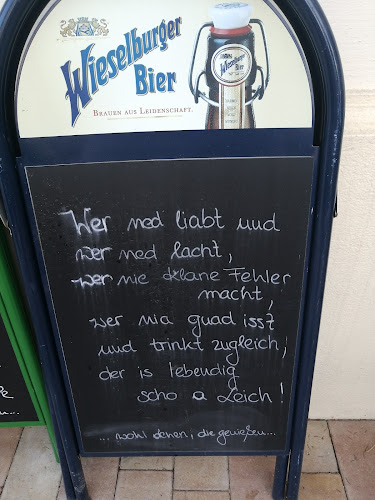 Wieselburger
Bier
BRAUEN AUS LEIDENSCHAFT.
Wieselburger
Bier
Wer ned liabt und
wer ned lacht,
wer nie klane Fehler
macht,
wer nia guad isst
und trinkt zugleich,
der is lebendig
scho a Leich!
...wohl denen, die genießen...